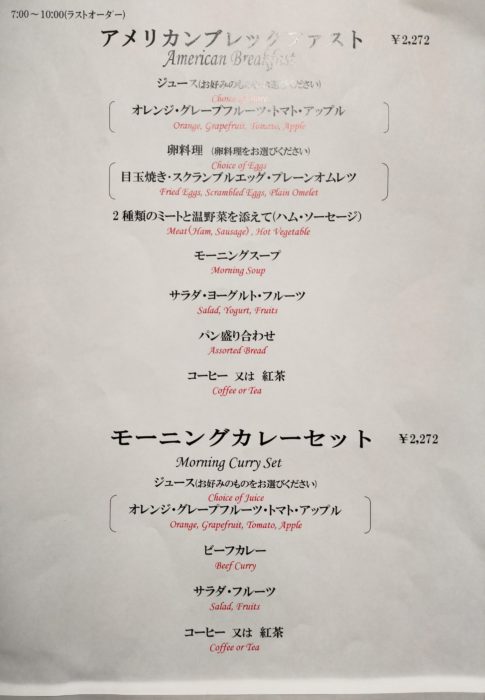 7:00～10:00(ラストオーダー)
アメリカンブレックファスト ￥2,272
American Breakfast
ジュース(お好みのものをお選びください)
Choice of Juice
オレンジ・グレープフルーツ・トマト・アップル
Orange, Grapefruit, Tomato, Apple
卵料理 (卵料理をお選びください)
Choice of Eggs
目玉焼き・スクランブルエッグ・プレーンオムレツ
Fried Eggs, Scrambled Eggs, Plain Omelet
2種類のミートと温野菜を添えて(ハム・ソーセージ)
Meat(Ham, Sausage), Hot Vegetable
モーニングスープ
Morning Soup
サラダ・ヨーグルト・フルーツ
Salad, Yogurt, Fruits
パン盛り合わせ
Assorted Bread
コーヒー 又は 紅茶
Coffee or Tea
モーニングカレーセット ￥2,272
Morning Curry Set
ジュース(お好みのものをお選びください)
Choice of Juice
オレンジ・グレープフルーツ・トマト・アップル
Orange, Grapefruit, Tomato, Apple
ビーフカレー
Beef Curry
サラダ・フルーツ
Salad, Fruits
コーヒー 又は 紅茶
Coffee or Tea